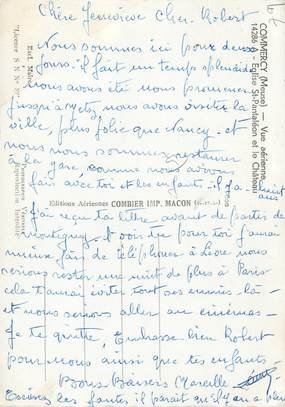 Chère Geneviève Cher Robert
Nous sommes ici pour deux
jours. il fait un temps splendide
nous avons été nous promener
jusqu'à Metz nous avons visité la
ville, plus jolie que Nancy. et
nous nous sommes restaurer
à la gare, comme nous avions
fait avec toi et les enfants. il y a
J'ai reçu ta lettre avant de partir de
Montigny. et vois tu pour toi j'aurai
mieux fait de téléphoner à nous
serions rester une nuit de plus à Paris
cela t'aurai éviter tout ses ennuis-là
et nous serions aller au cinéma-
Je te quitte, Embrasse bien Robert
pour nous ainsi que tes enfants.
Bons Baisers Marcelle
Excusez les fautes il parait qu'il y en a plein
COMMERCY (Meuse) — Vue aérienne
14286 - Eglise St-Pantaléon et le Château
Editions Aériennes COMBIER IMP. MACON